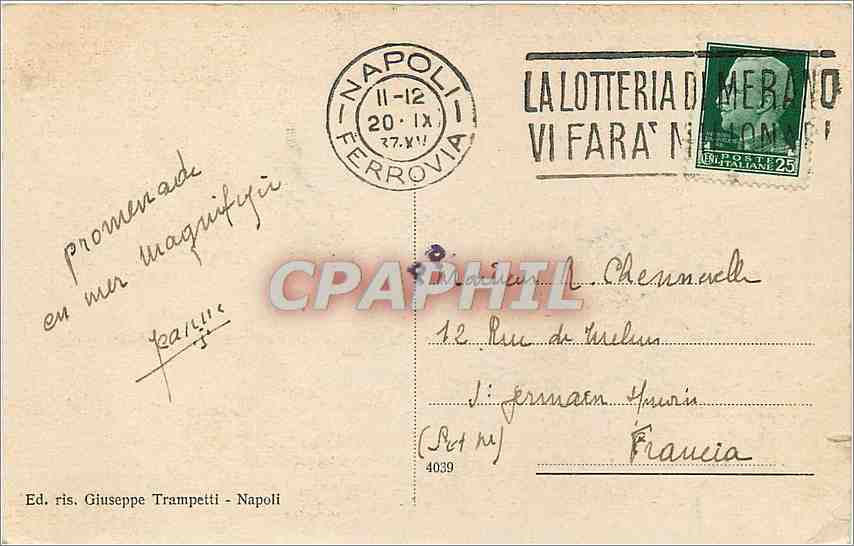 NAPOLI
11-12
20·IX
37·XV
FERROVIA
LA LOTTERIA DI MERANO
VI FARA'
POSTE
ITALIANE
25
promenade
en mer magnifique
CPARPHIL
Chennevelle
12 Rue de
St Germain
Francia
4039
Ed. ris. Giuseppe Trampetti - Napoli